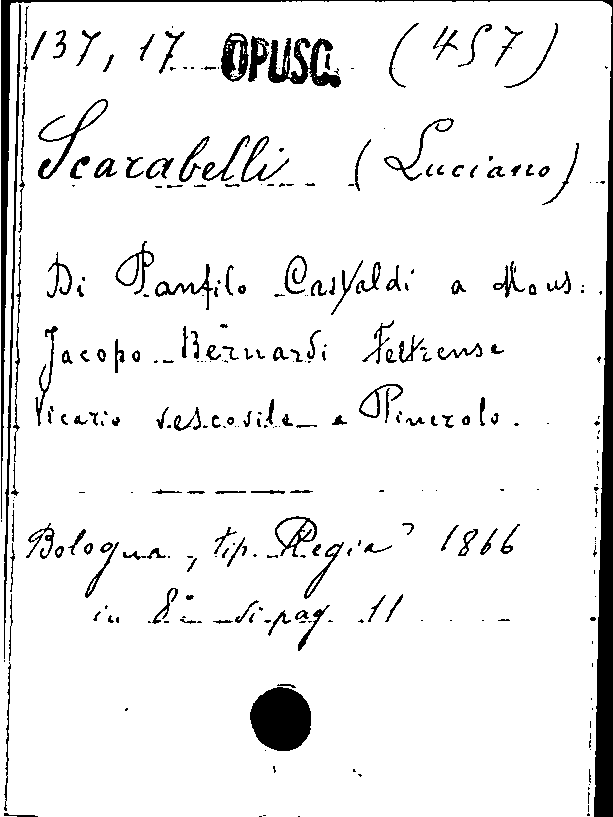 137, 17 OPUSC. (457)
Scarabelli (Luciano)
Di Panfilo Castaldi a Mons.
Jacopo Bernardi Feltrense
Vicario vescovile a Pinerolo.
Bologna, tip. Regia" 1866
in 8° di pag. 11